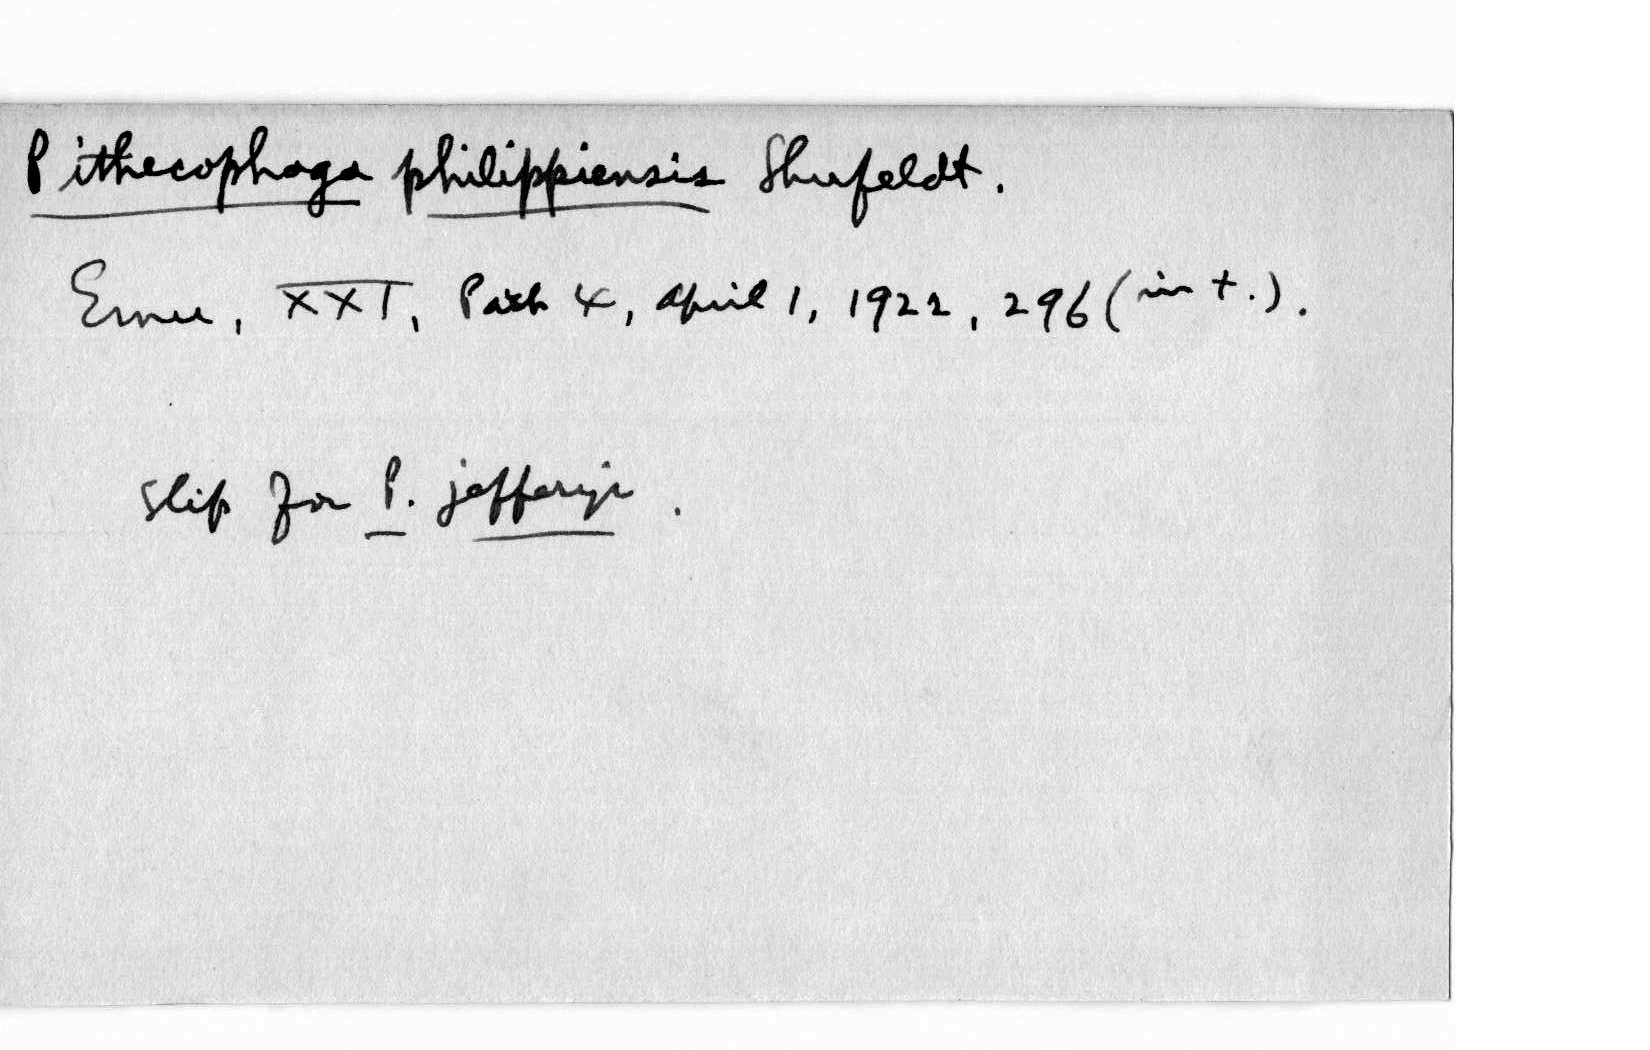 Pithecophaga philippiensis Shufeldt.
Emu, XXI, Part 4, April 1, 1922, 296 (in t.).
slip for P. jefferyi.